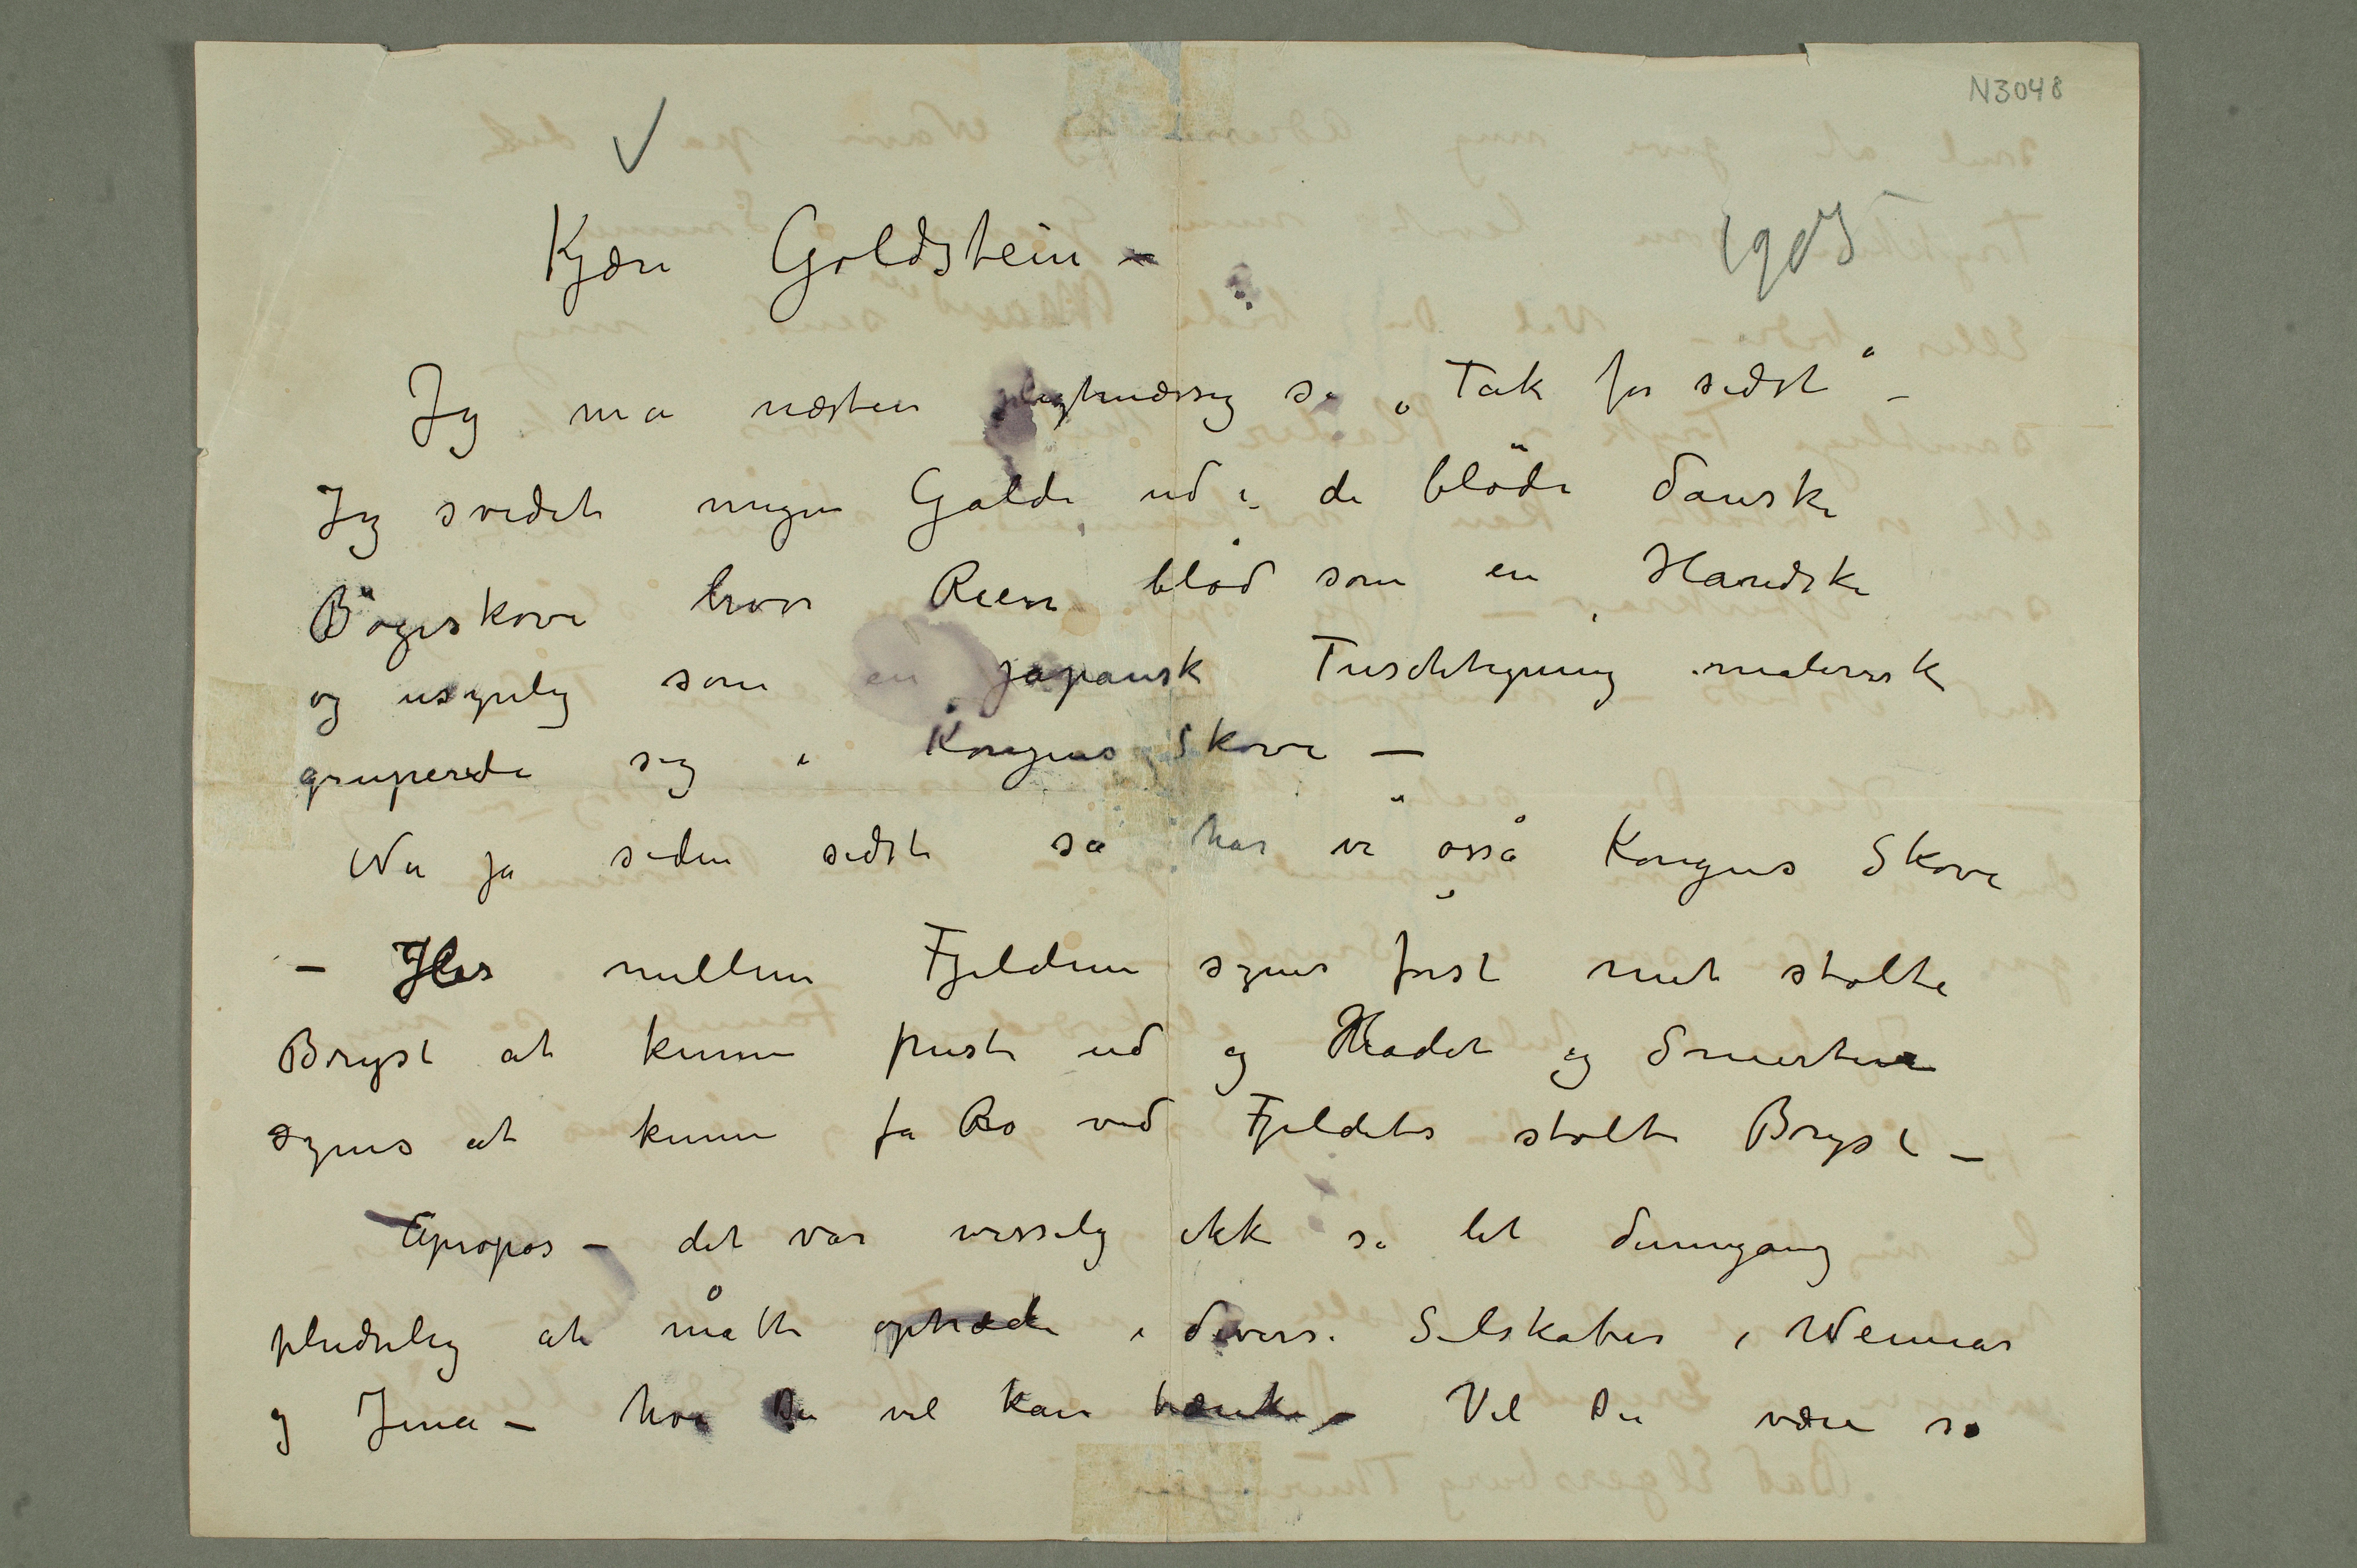 N3048
1905
Kjære Goldstein –
Jeg må næsten pligtmæssig si „Tak for sidst“ –
Jeg svedet megen Galde ud i de bløde danske
Bøgeskove hvor Ræven blød som en Handske
og usynlig som en japansk Tuschtegning malerisk
gruperede sig i Kongens Skove –
Nu ja siden sidst så har vi også Kongens Skove
– Her mellem Fjeldene synes først mit stolte
Bryst at kunne puste ud og Hadet og Smerten
synes at kunne få Ro ved Fjeldets stolte Bryst –
Apropos – det var visselig ikke så let dengang
pludselig at måtte optræde i diverse Selskaber i Weimar
og Jena – hva Du vel kan tænke – Vil Du være så